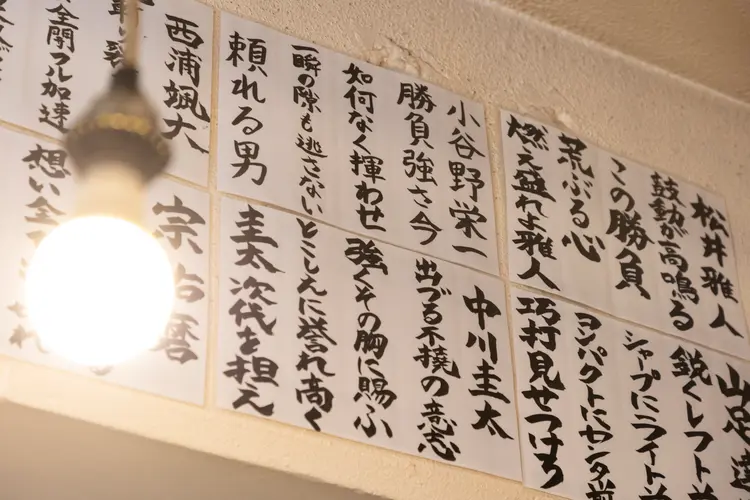 松井雅人
鼓動が高鳴る
この勝負
荒ぶる心
燃え盛れよ雅人
小谷野栄一
勝負強さ今
如何なく揮わせ
一瞬の隙も逃さない
頼れる男
西浦颯大
全開フル加速
山足達
鋭くレフト
シャープにライト
コンパクトにセンタ前
巧打見せつけろ
中川圭太
出づる不撓の意志
強くその胸に賜ふ
とこしえに誉れ高く
圭太次代を担え
宗佑磨
想い全て